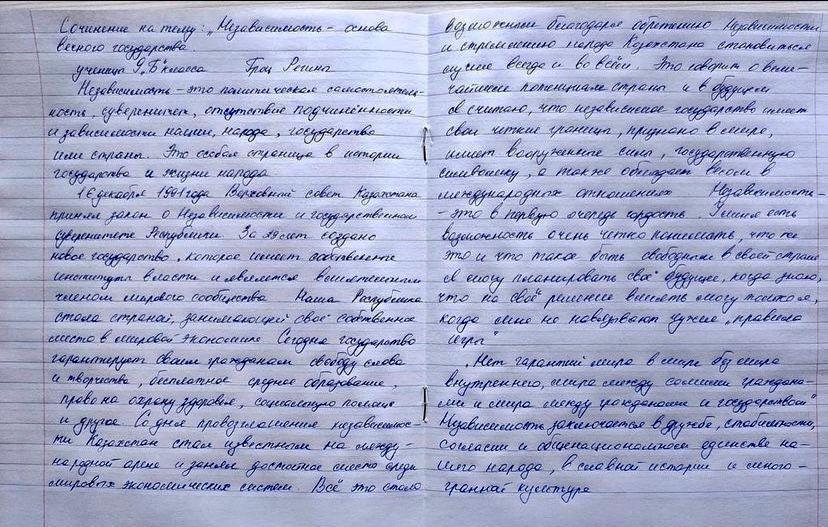 Сочинение на тему: „Независимость - основа
весного государства
ученицы 9 „Б" класса Грац Регины
Независимость - это политическая самостоятель-
ность, суверенитет, отсутствие подчинённости
и зависимости нации, народа, государства
или страны. Это особая страница в истории
государства и жизни народа
16 декабря 1991 года Верховный совет Казахстана
принял закон о Независимости и государственном
суверенитете Республики За 29 лет создано
новое государство, которое имеет собственные
институты власти и является влиятельным
членом мирового сообщества Наша Республика
стала страной, занимающей своё собственное
место в мировой экономике Сегодня государство
гарантирует своим гражданам свободу слова
и творчества, бесплатное среднее образование,
право на охрану здоровья, социальную помощь
и другое. Со дня провозглашения независимос-
ти Казахстан стал известным на между-
народной арене и занял достойное место среди
мировых экономических систем. Всё это стало
возможным благодаря обретению Независимости
и стремлению народа Казахстана становиться
лучше всегда и во всём. Это говорит о вели-
чайшем потенциале страны и в будущем
Я считаю, что независимое государство имеет
свои чёткие границы, признано в мире,
имеет вооруженные силы, государственную
символику, а также обладает весом в
международных отношениях Независимость-
- это в первую очередь гордость. У меня есть
возможность очень чётко понимать, что же
это и что такое быть свободным в своей стране
Я могу планировать своё будущее, когда знаю,
что на своё решение влиять могу только я,
когда мне не навязывают чужие „правила
игры"
„Нет гарантий мира в мире без мира
внутреннего, мира между самими граждана-
ми и мира между гражданами и государством"
Независимость заключается в дружбе, стабильности,
согласии и общенациональном единстве на-
шего народа, в славной истории и много-
гранной культуре